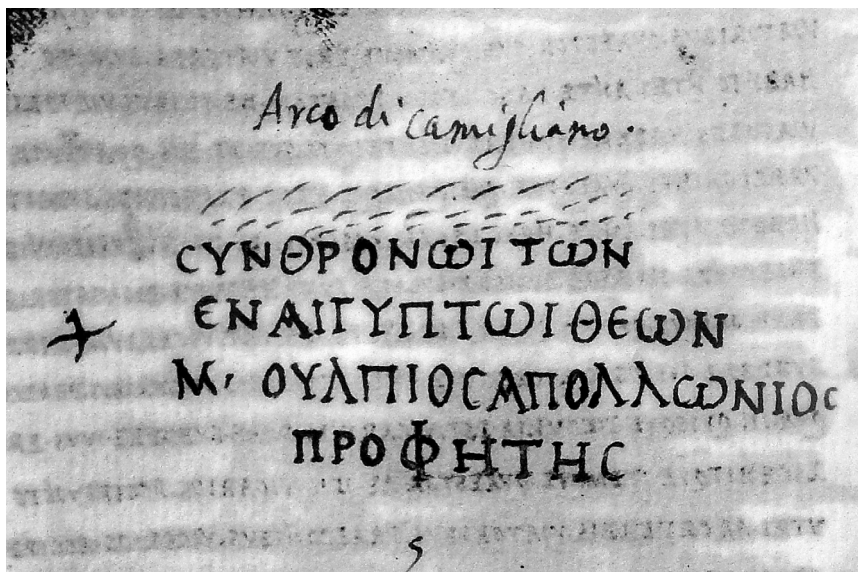 Arco di camigliano.
CΥΝΘΡΟΝѠΙ ΤѠΝ
ЄΝ ΑΙΓΥΠΤѠΙ ΘЄѠΝ
Μ, ΟΥΛΠΙΟC ΑΠΟΛΛѠΝΙΟC
ΠΡΟΦΗΤΗC